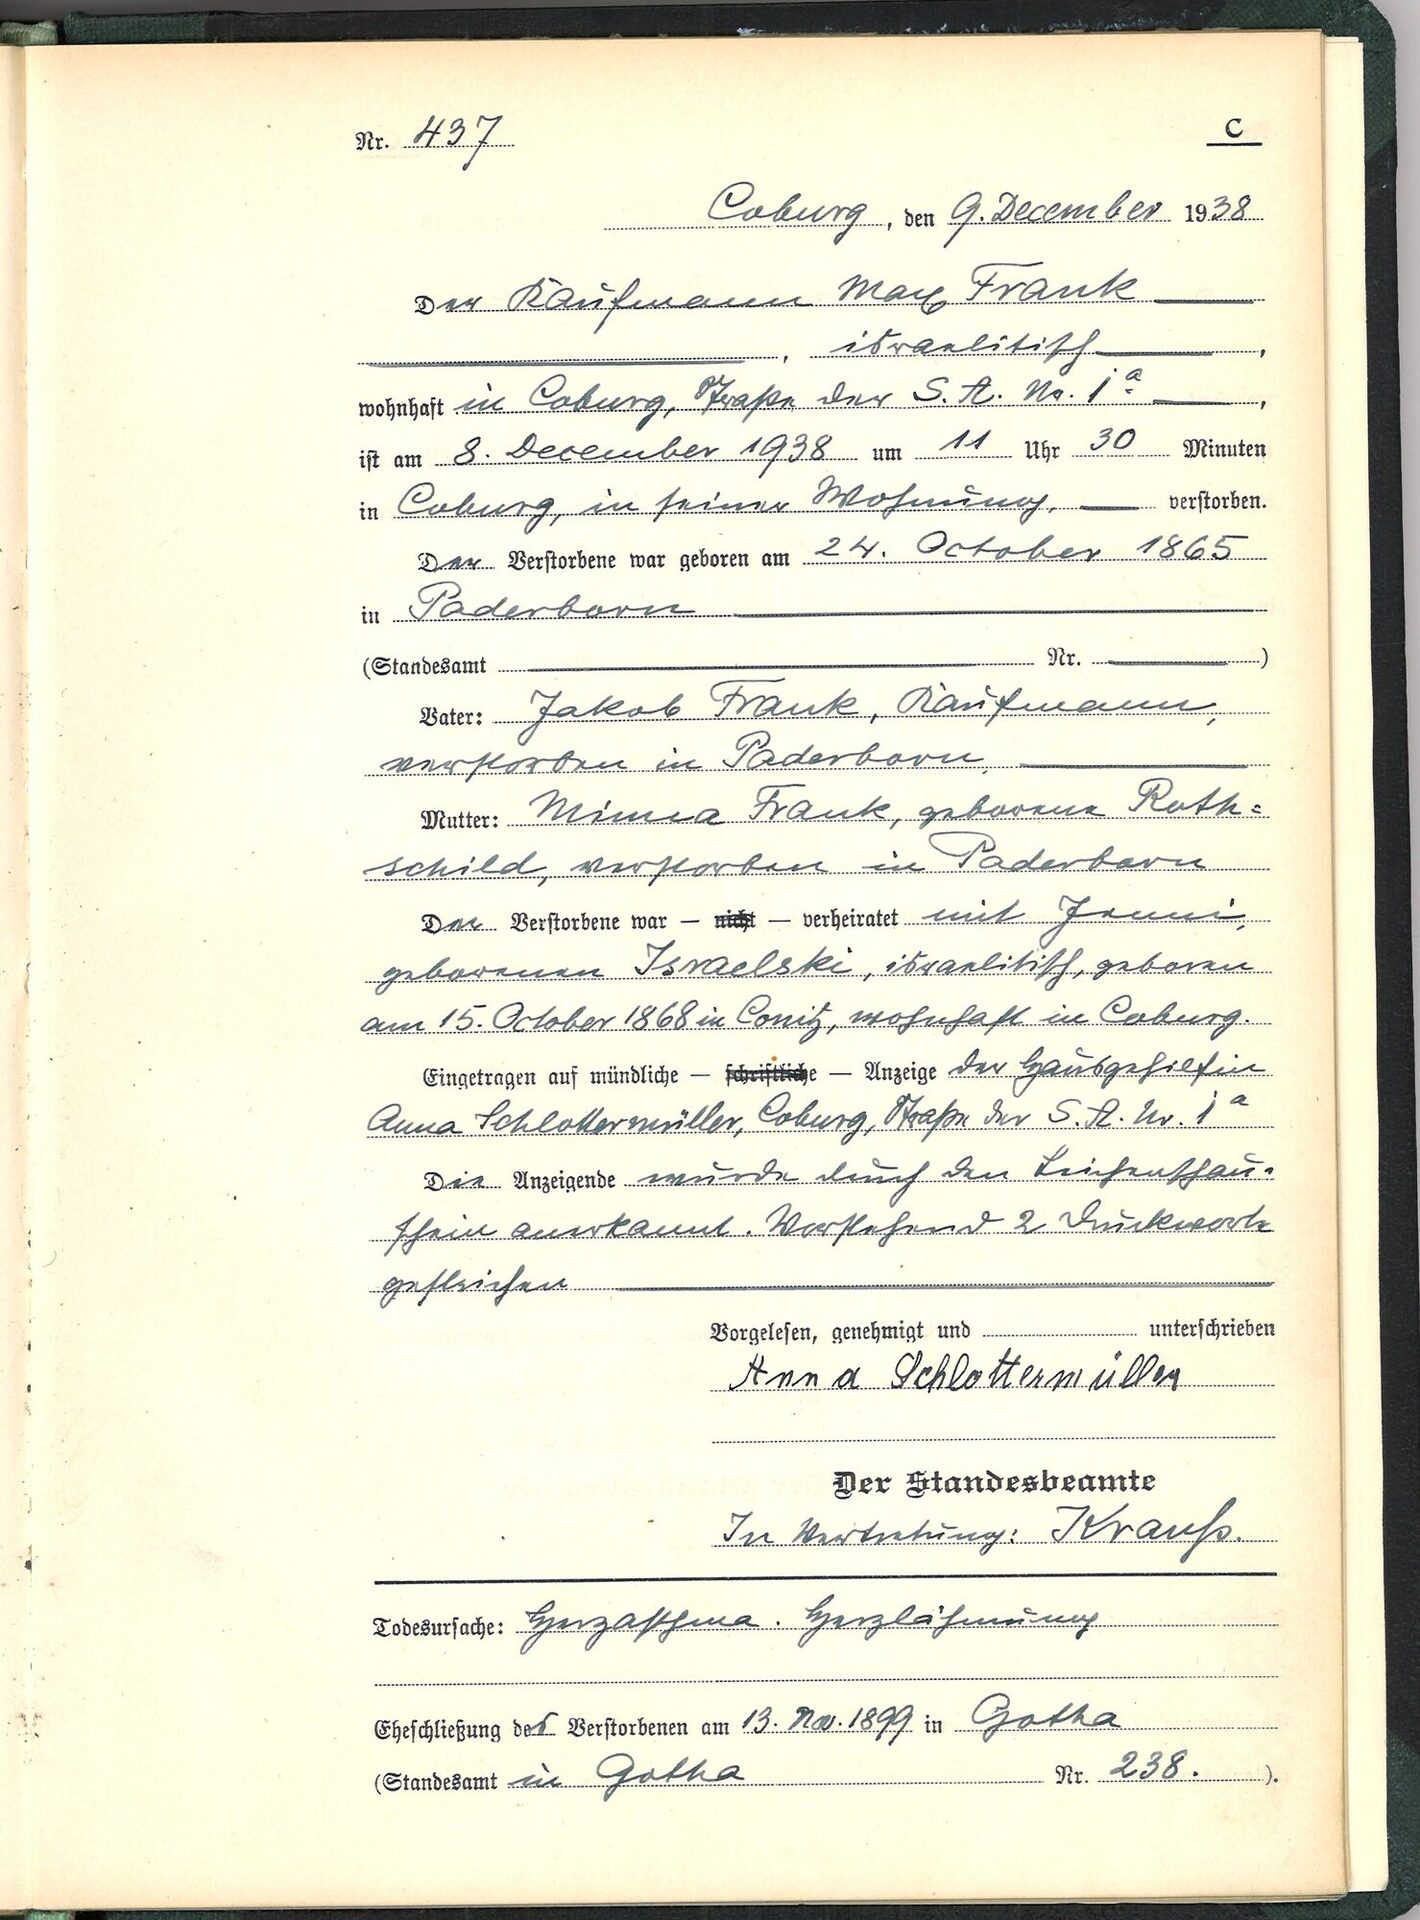 Nr. 437
C
Coburg, den 9. December 1938
Der Kaufmann Max Frank
, israelitisch ,
wohnhaft in Coburg, Straße der S. A. No. 1a ,
ist am 8. December 1938 um 11 Uhr 30 Minuten
in Coburg, in seiner Wohnung, verstorben.
Der Verstorbene war geboren am 24. October 1865
in Paderborn
(Standesamt Nr. )
Vater: Jakob Frank, Kaufmann,
verstorben in Paderborn,
Mutter: Minna Frank, geborene Roth=
schild, verstorben in Paderborn
Der Verstorbene war — nicht — verheiratet mit Jenni,
geborenen Israelski, israelitisch, geboren
am 15. October 1868 in Conitz, wohnhaft in Coburg.
Eingetragen auf mündliche — schriftliche — Anzeige der Hausgehilfin
Anna Schlottermüller, Coburg, Straße der S. A. Nr. 1a
Die Anzeigende wurde durch den Leichenschau=
schein anerkannt. Vorstehend 2 Druckworte
gestrichen
Vorgelesen, genehmigt und unterschrieben
Anna Schlottermüller
Der Standesbeamte
In Vertretung: Krauß.
Todesursache: Herzasthma. Herzlähmung
Eheschließung des Verstorbenen am 13. Nov. 1899 in Gotha
(Standesamt in Gotha Nr. 238. ).